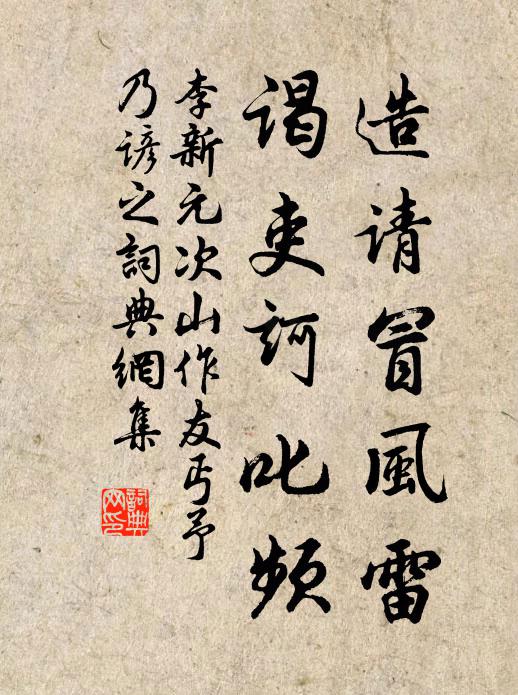 造请冒風雷
谒吏訶叱频
李新元次山作友丐予
乃谚之詞典網集
詞典
网印